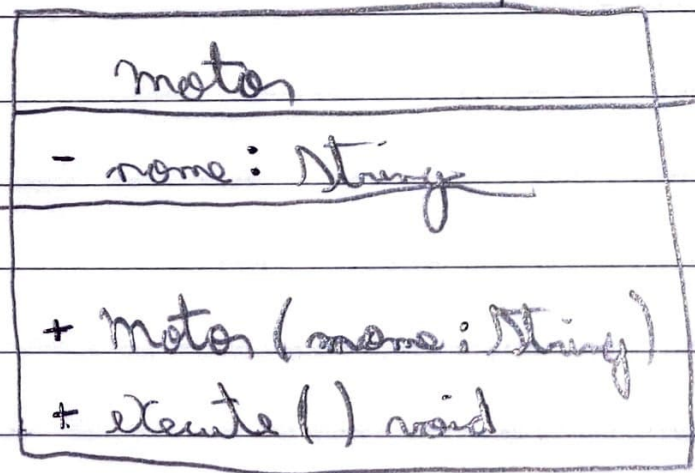 motor
- nome: String
+ Motor (nome: String)
+ execute() void